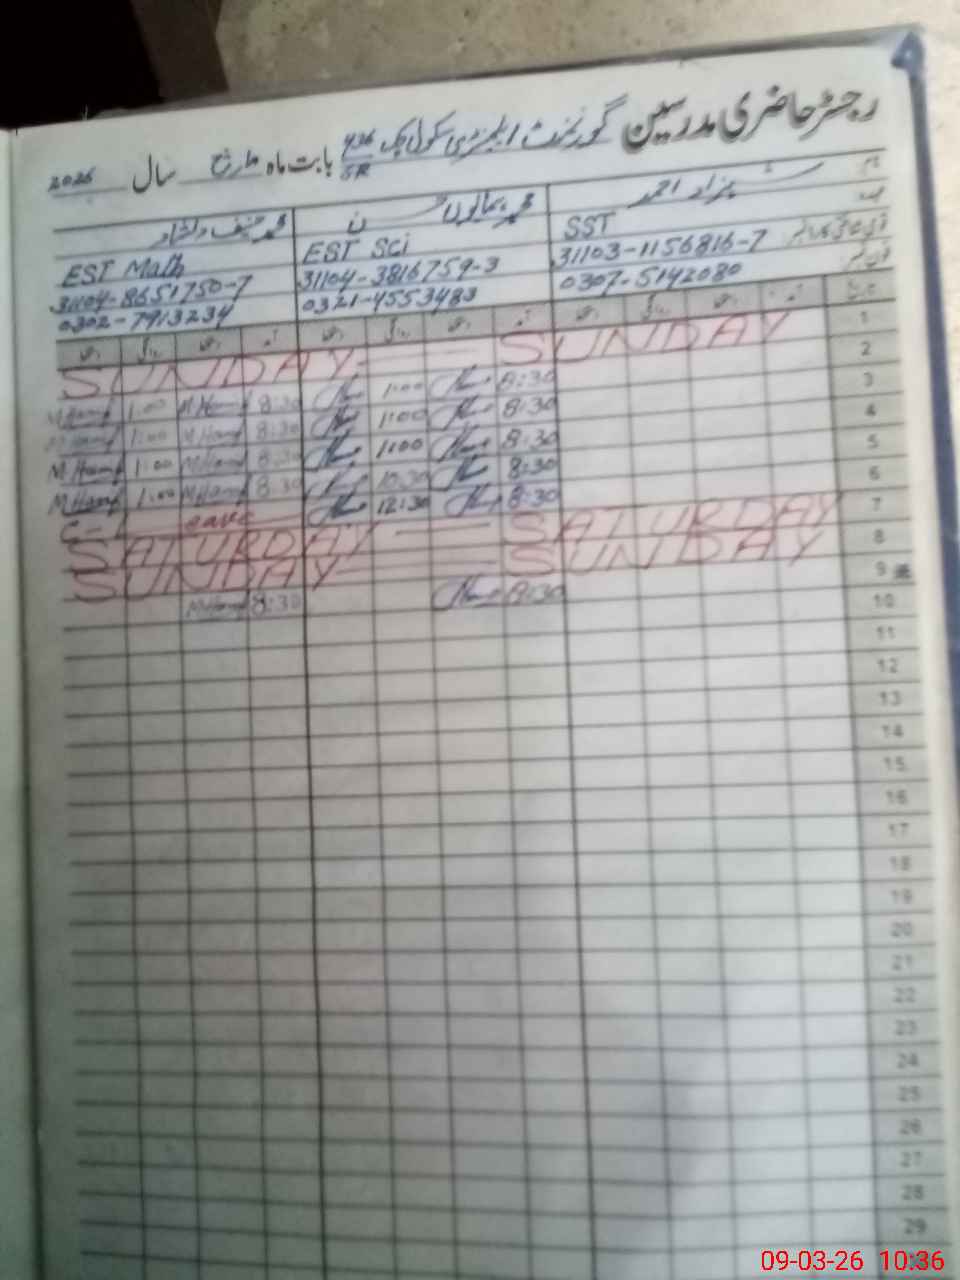 رجسٹر حاضری مدرسین گورنمنٹ ایلیمنٹری سکول چک 436/5R بابت ماہ مارچ سال 2026
نام شہزاد احمد محمد ہمایوں حسن محمد حنیف دلشاد
عہدہ SST EST Sci EST Math
شناختی کارڈ نمبر 31103-1156816-7 31104-3816759-3 31104-8651750-7
فون نمبر 0307-5142080 0321-4553483 0302-7913234
1 SUNDAY SUNDAY
2 8:30 1:00 8:30 M.Hanif 1:00 M.Hanif
3 8:30 1:00 8:30 M.Hanif 1:00 M.Hanif
4 8:30 1:00 8:30 M.Hanif 1:00 M.Hanif
5 8:30 10:30 8:30 M.Hanif 1:00 M.Hanif
6 8:30 12:30 C-Leave
7 SATURDAY SATURDAY
8 SUNDAY SUNDAY
9 8:30 8:30 M.Hanif
10
11
12
13
14
15
16
17
18
19
20
21
22
23
24
25
26
27
28
29
09-03-26 10:36